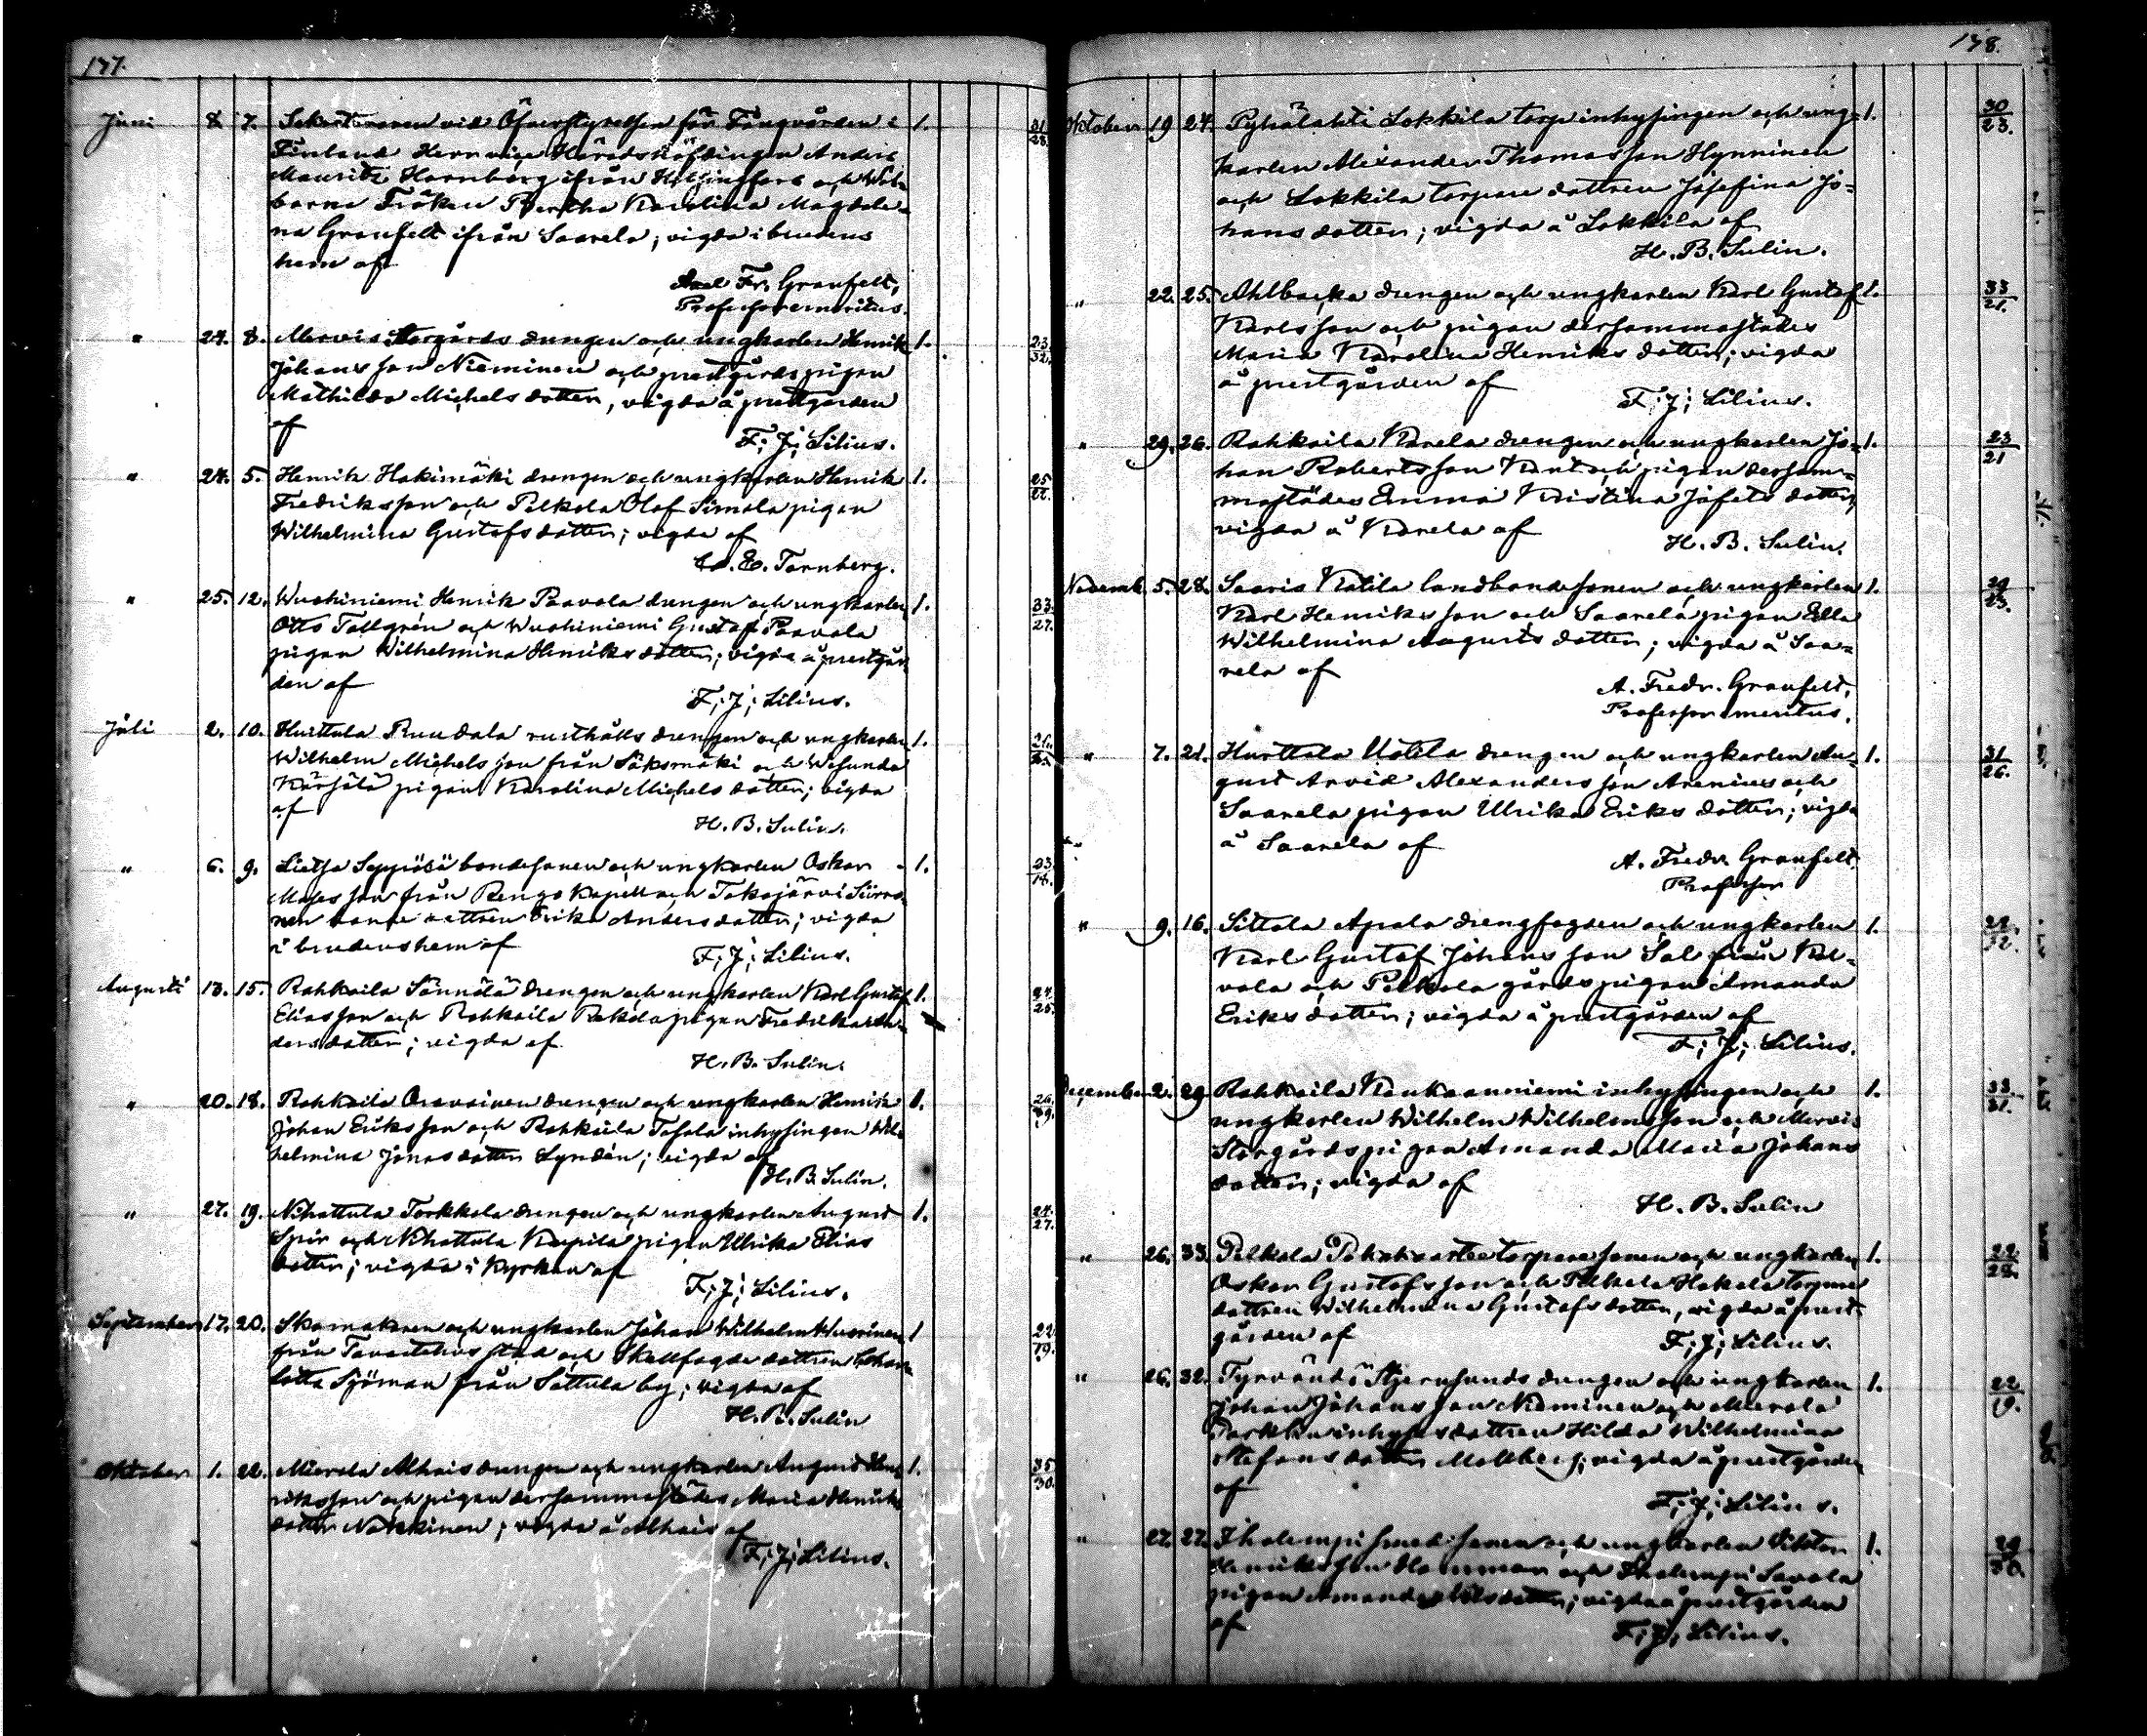 177.
Juni 8 7. Sekreteraren vid Öfverstyrelsen för Fångvården i 1. 31/28.
Finland Herr vice Häradshöfdingen Anders
Mauritz Hornborg ifrån Helsingfors och Wel-
borna Fröken Bertha Karolina Magdale-
na Granfelt ifrån Saarela; vigda i brudens
hem af
Axel Fr. Granfelt,
Professor emeritus.
" 24. 8. Mervis Storgårds drengen och ungkarlen Henrik 1. 23./32.
Johansson Nieminen och prestgårdspigan
Mathilda Michelsdotter, vigda å prestgården
af
F; J; Lilius.
" 24. 5. Henrik Hakimäki drengen och ungkarlen Henrik 1. 25/22.
Fredriksson och Pelkola Olof Simola pigan
Wilhelmina Gustafsdotter; vigda af
E. Tornberg.
" 25. 12. Wuohiniemi Henrik Paavola drengen och ungkarlen 1. 33./27.
Otto Tallgrén och Wuohiniemi Gustaf Paavola
pigan Wilhelmina Henriksdotter; vigda å prestgår-
den af
F; J; Lilius.
Juli 2. 10. Hurttula Ruudala rusthålls drengen och ungkarlen 1.
Wilhelm Michelsson från Sääksmäki och Wesunda
Kärjälä pigan Karolina Michelsdotter; vigda
af
H. B. Sulin.
" 6. 9. Lietsa Seppälä bondesonen och ungkarlen Oskar 1. 23./18.
Mosesson från Rengo Kapell och Takajärvi
dottren Erika Andersdotter; vigda
i brudens hem af
F; J; Lilius.
Augusti 13. 15. Rahkoila Sännälä drengen och ungkarlen Karl Gustaf 1. 24./25.
Eliasson och Rahkoila Rekola pigan Fredrika An-
dersdotter; vigda af
H. B. Sulin.
" 20. 18. Rahkoila Oravainen drengen och ungkarlen Henrik 1. 26./39.
Johan Eriksson och Rahkoila Tosala inhysingen Wil-
helmina Jonasdotter Lyndén; vigda af
H. B. Sulin.
" 27. 19. Nihattula Torkkola drengen och ungkarlen August 1. 24./27.
Spir och Nihattula Kaupila pigan Ulrika Elias
dotter; vigda i Kyrkan af
F; J; Lilius.
September 17. 20. Skomakaren och ungkarlen Johan Wilhelm Wuorinen 1 22./19.
från Tavastehus stad och Skallfogde dottren Char-
lotta Sjöman från Sattula by; vigda af
H. B. Sulin
Oktober 1. 22. Mierola Alhais drengen och ungkarlen August Hen- 1. 35./30.
riksson och pigan dersammastädes Maria Henriks
dotter Nokkinen; vigda å Alhais af
F; J; Lilius.
178.
Oktober 19 24. Pyhälahti Lokkila torp inhysingen och ung- 1. 30/23.
karlen Alexander Thomasson Hynninen
och Lokkila torpare dottren Josefina Jo-
hansdotter; vigda å Lokkila af
H. B. Sulin.
" 22. 25. Ahlbacka drengen och ungkarlen Karl Gustaf 1. 33/21.
Karlsson och pigan dersammastädes
Maria Karolina Henriksdotter; vigda
å prestgården af
F; J; Lilius.
" 29. 26. Rahkoila Karela drengen och ungkarlen Jo- 1. 23/21
han Robertsson Kant och pigan dersam-
mastädes Emma Kristina Jafetsdotter,
vigda å Karela af
H. B. Sulin.
Novemb. 5. 28. Saaris Kotila landbondesonen och ungkarlen 1. 29/23.
Karl Henriksson och Saarela pigan Ella
Wilhelmina Augustsdotter; vigda å Saa-
rela af
A. Fredr. Granfelt,
Professor emeritus.
" 7. 21. Hurttala Uotila drengen och ungkarlen Au- 1. 31/26.
gust Arvid Alexandersson Arenius och
Saarela pigan Ulrika Eriksdotter; vigda
å Saarela af
A. Fredr. Granfelt.
Professor
" 9. 16. Sittala Apala drengfogden och ungkarlen 1.
Karl Gustaf Johansson Sal från Kal-
vola och Pelkola gårds pigan Amanda
Eriksdotter; vigda å prestgården af
F; J; Lilius.
December 2. 29 Rahkoila Kaukaanniemi inhysingen och 1. 33./31.
ungkarlen Wilhelm Wilhelmsson och Mervis
Storgårds pigan Amanda Maria Johans
dotter; vigda af
H. B. Sulin
" 26. 33. Pelkola torparesonen och ungkarlen 1. 22/28.
Oskar Gustafsson och Pelkola Hakala torpare
dottren Wilhelmina Gustafsdotter, vigda å prest-
gården af
F; J; Lilius.
" 26. 32. Tyrväntö Stjernsunds drengen och ungkarlen 1. 22/19.
Johan Johansson Nieminen och Mierola
inhyses dottren Hilda Wilhelmina
Stefansdotter Mollberg; vigda å prestgården
af
F; J; Lilius.
" 27. 27. Ihalempi smedsonen och ungkarlen Viktor 1.
Henriksson Hamman och Ihalempi Savola
pigan Amanda dotter; vigda å prestgården
af
F; J; Lilius.